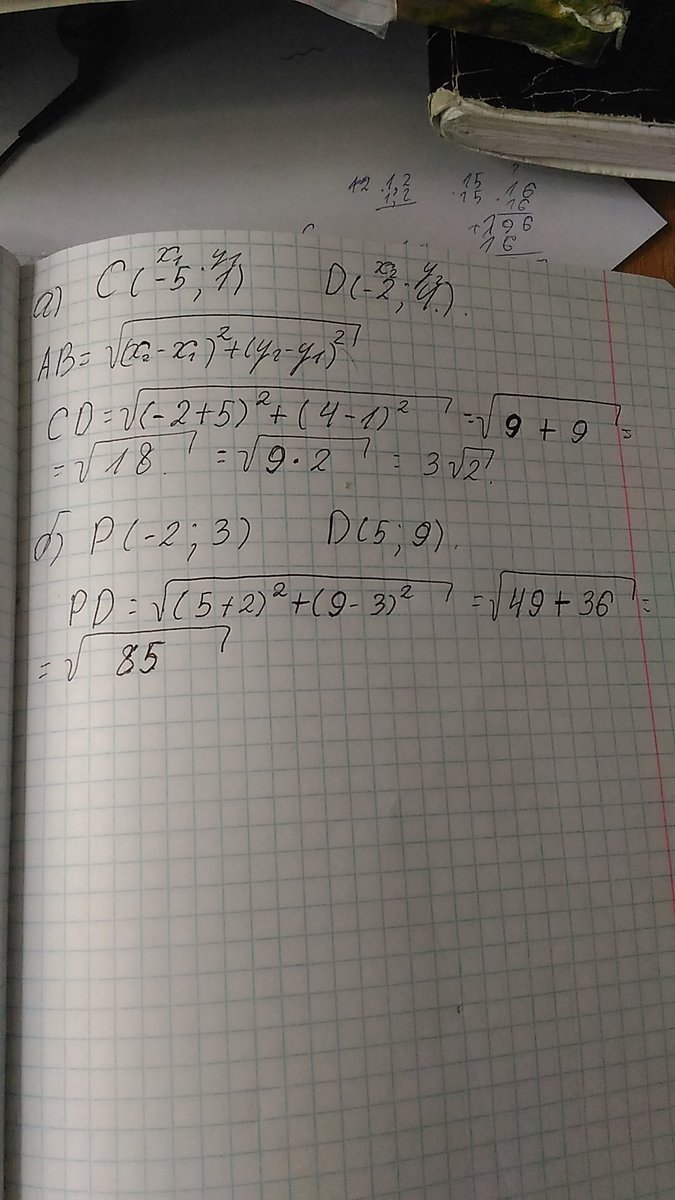 12 . 1,2 15 . 16
1,2 . 15 16
+ 196
16
x₁ y₁ x₂ y₂
а) C (-5 ; 1) D (-2 ; 4).
AB = √(x₂ - x₁)² + (y₂ - y₁)²
CD = √(-2 + 5)² + (4 - 1)² = √9 + 9 =
= √18 = √9 · 2 = 3√2.
б) P (-2 ; 3) D (5 ; 9).
PD = √(5 + 2)² + (9 - 3)² = √49 + 36 =
= √85